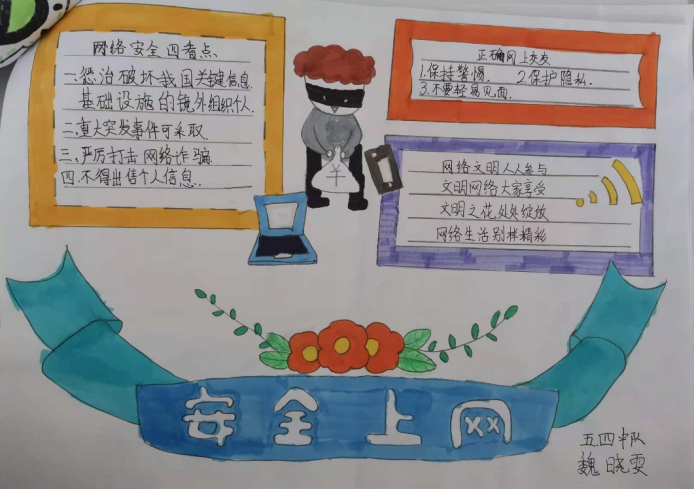 网络安全四看点
一.惩治破坏我国关键信息
基础设施的镜外组织个人
二.重大突发事件可采取
三.严厉打击网络诈骗
四.不得出售个人信息.
正确网上交友
1.保持警惕. 2.保护隐私.
3.不要轻易见面.
网络文明人人参与
文明网络大家享受
文明之花处处绽放
网络生活别样精彩
安全上网
五四中队
魏晓雯